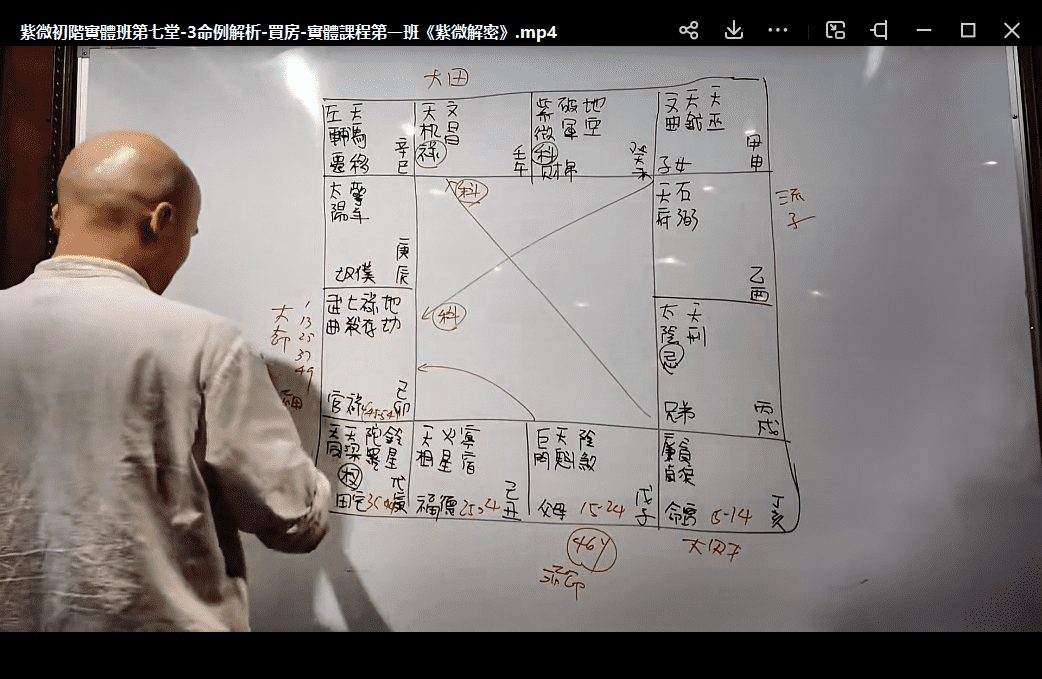 紫微初階實體班第七堂-3命例解析-買房-實體課程第一班《紫微解密》.mp4
大田
左 天
輔 馬
遷移
辛巳
天 文
机 昌
祿
壬午
紫 破 地
微 軍 空
科
癸未
文 天 天
曲 鉞 巫
子女
甲申
太 擎
陽 羊
奴僕
庚辰
科
天 右
府 弼
乙酉
三流
子
武 七 祿 地
曲 殺 存 劫
官祿
己卯
科
大 1
命 13
25
37
49
太 天
陰 刑
忌
兄弟
丙戌
天 陀 鈴
梁 星
权
田宅
天 火
相 星 宿
福德 25-34
己丑
巨 天 陰
門 魁 煞
父母 15-24
戊子
廉 貪
貞 狼
命宮 5-14
丁亥
46y